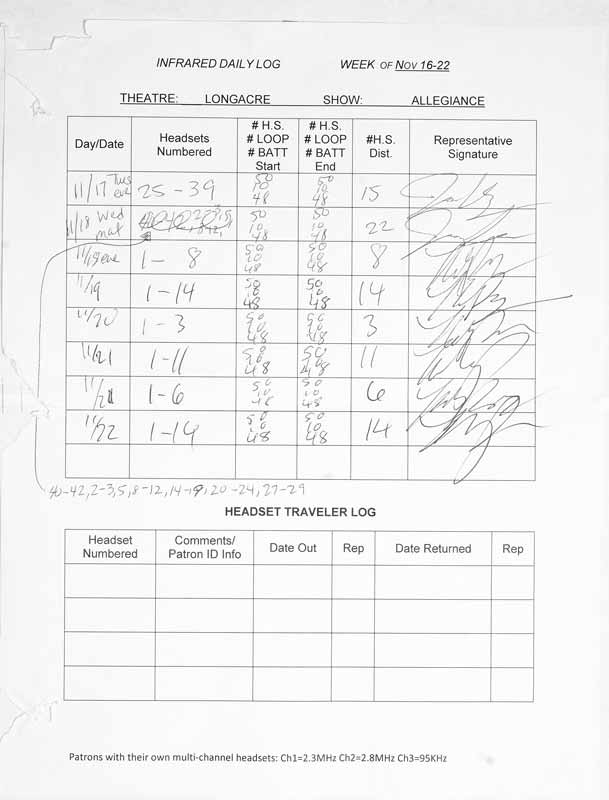 INFRARED DAILY LOG WEEK OF NOV 16-22
THEATRE: LONGACRE SHOW: ALLEGIANCE
Day/Date Headsets Numbered # H.S. # LOOP # BATT Start # H.S. # LOOP # BATT End #H.S. Dist. Representative Signature
11/17 Tues eve 25-39 50 10 48 50 10 48 15
11/18 Wed mat 50 10 48 50 10 48 22
11/18 eve 1-8 50 10 48 50 10 48 8
11/19 1-14 50 10 48 50 10 48 14
11/20 1-3 50 10 48 50 10 48 3
11/21 1-11 50 10 48 50 10 48 11
11/21 1-6 50 10 48 50 10 48 6
11/22 1-14 50 10 48 50 10 48 14
40-42, 2-3, 5, 8-12, 14-19, 20-24, 27-29
HEADSET TRAVELER LOG
Headset Numbered Comments/ Patron ID Info Date Out Rep Date Returned Rep
Patrons with their own multi-channel headsets: Ch1=2.3MHz Ch2=2.8MHz Ch3=95KHz